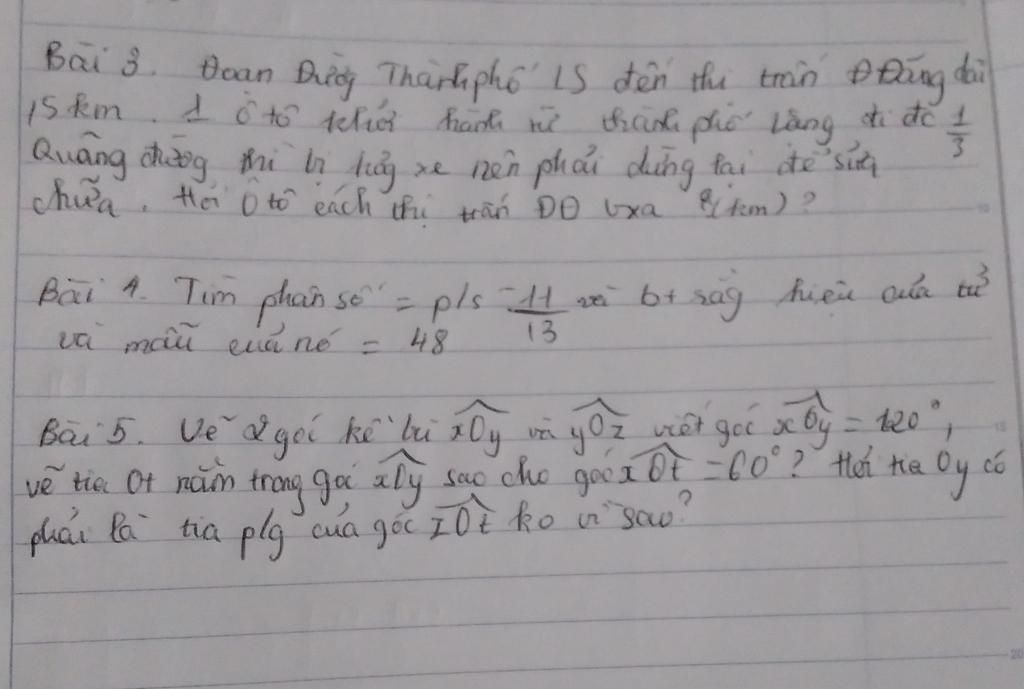 Bài 3. Đoạn Đường Thành phố LS đến thị trấn ĐĐăng dài
15km. 1 ô tô khởi hành từ thành phố Lạng đi đc 1/3
Quãng đường thì bị hỏg xe nên phải dừng lại để sửa
chữa. Hỏi Ô tô cách thị trấn ĐĐ bxa ?(km)?
Bài 4. Tìm phân số = p/s -11/13 và bt rằg hiệu của tử
và mẫu của nó = 48
Bài 5. Vẽ 2 góc kề bù xOy và yOz viết góc xOy = 120°,
vẽ tia Ot nằm trong góc xOy sao cho góc xOt = 60°? Hỏi tia Oy có
phải là tia p/g của góc zOt ko vì sao?